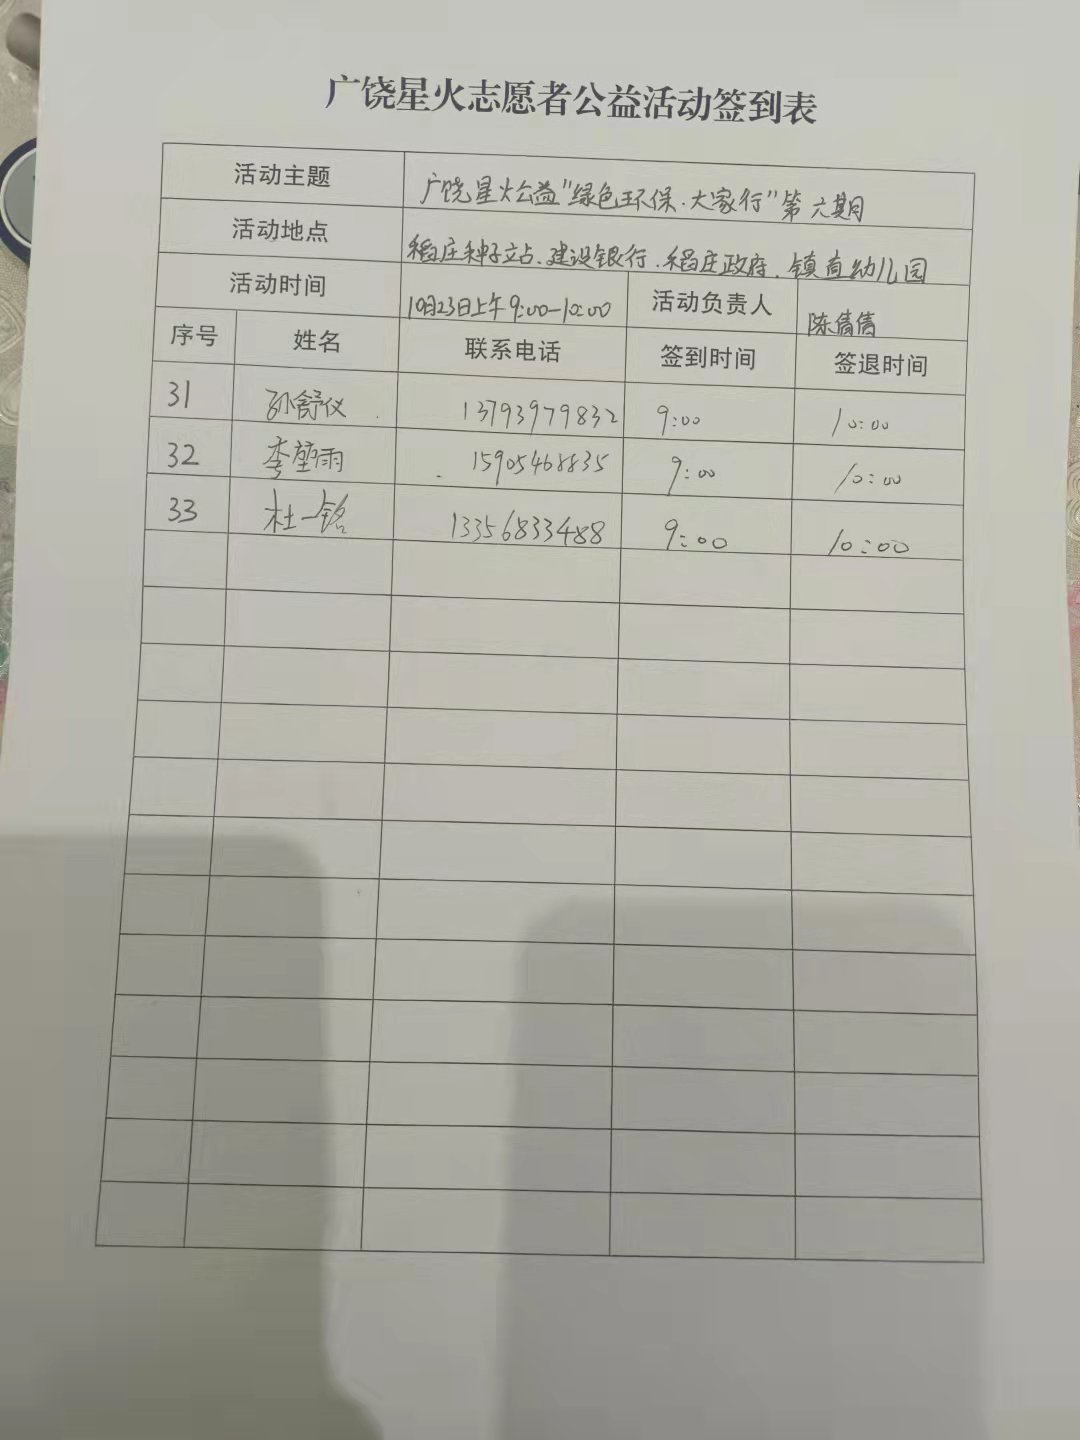 广饶星火志愿者公益活动签到表
活动主题 广饶星火公益"绿色环保·大家行"第六期
活动地点 稻庄种子立站、建设银行、稻庄政府、镇直幼儿园
活动时间 10月23日上午9:00-10:00 活动负责人 陈倩倩
序号 姓名 联系电话 签到时间 签退时间
31 孙舒仪 13793979832 9:00 10:00
32 李堃雨 15905468835 9:00 10:00
33 杜一铭 13356833488 9:00 10:00